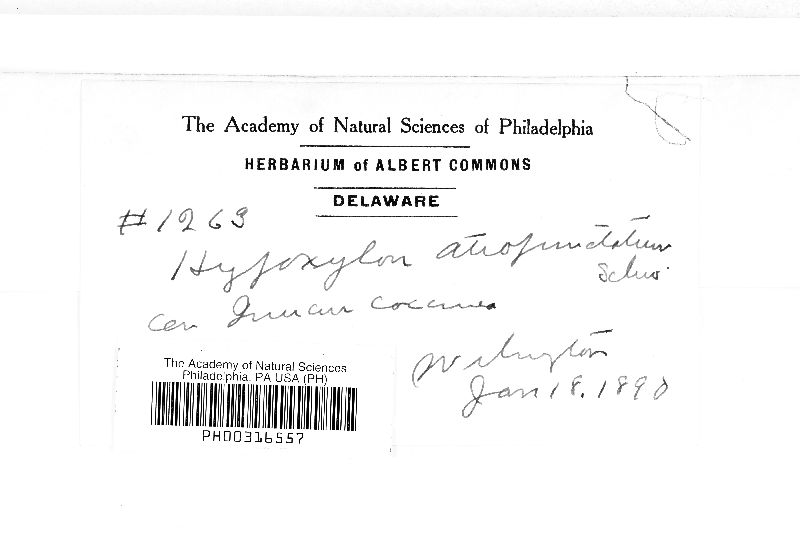 The Academy of Natural Sciences of Philadelphia
HERBARIUM of ALBERT COMMONS
DELAWARE
#1263
Hypoxylon atropunctatum
Schw.
on Quercus coccinea
Wilmington
Jan 18. 1890
The Academy of Natural Sciences
Philadelphia, PA USA (PH)
PH00316557